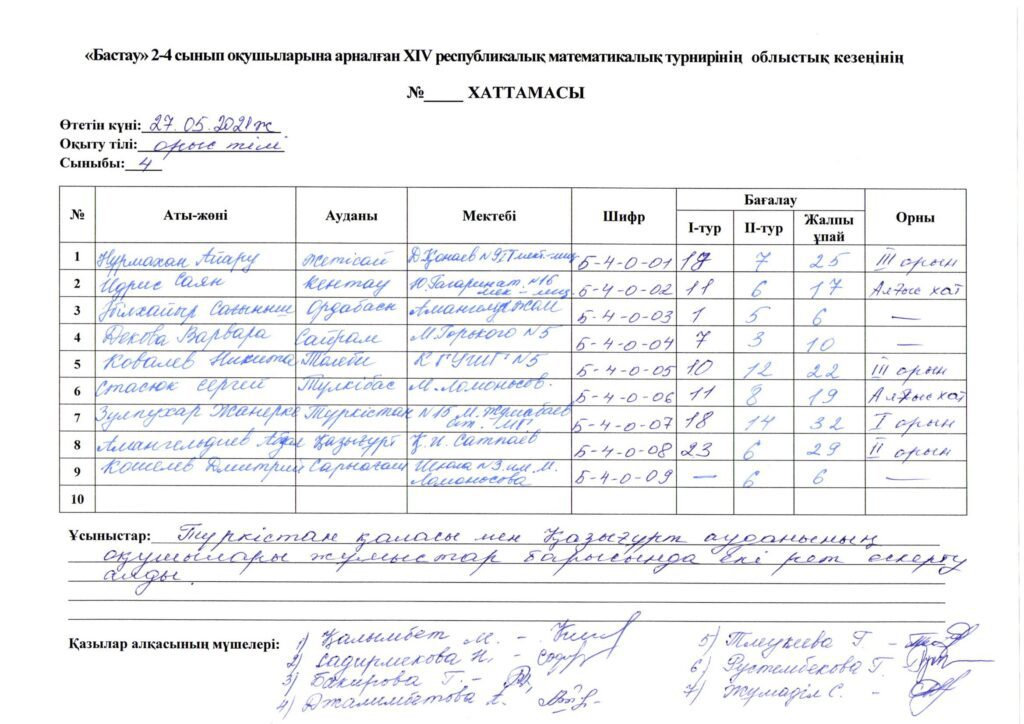 «Бастау» 2-4 сынып оқушыларына арналған XIV республикалық математикалық турнирінің облыстық кезеңінің
№_____ ХАТТАМАСЫ
Өтетін күні: 27.05.2021ж
Оқыту тілі: орыс тілі
Сыныбы: 4
№ Аты-жөні Ауданы Мектебі Шифр Бағалау Орны
І-тур ІІ-тур Жалпы ұпай
1 Нурмахан Айару Жетісай Д.Қонаев №9 Б-4-0-01 18 7 25 III орын
2 Идрис Саян Кентау Ю Гагарин ат. №16 мек-лиц Б-4-0-02 11 6 17 Алғыс хат
3 Ордабасы Б-4-0-03 1 5 6 —
4 Декова Варвара Сайрам М.Горького №5 Б-4-0-04 7 3 10 —
5 Ковалев Никита Төлеби №5 Б-4-0-05 10 12 22 III орын
6 Стасюк Сергей Түлкібас М.Ломоносов. Б-4-0-06 11 8 19 Алғыс хат
7 Зулпухар Жанерке Түркістан №15 М.Жұмабаев Б-4-0-07 18 14 32 I орын
8 Амангельдиев Қазығұрт Қ.И. Сатпаев Б-4-0-08 23 6 29 II орын
9 Кошелев Дмитрий Сарыағаш Школа №3 им. М. Ломоносова Б-4-0-09 — 6 6 —
10
Ұсыныстар: Түркістан қаласы мен Қазығұрт ауданының
оқушылары жұмыстар барысында екі рет ескерту
алды.
Қазылар алқасының мүшелері: 1) Қалымбет М. -
2) Садирмекова Н. -
3) Бакирова Г. -
4) Джалимбетова А.
5) Тлеукеева Г. -
6) Рустембекова Г.
7) Жумаділ С. -